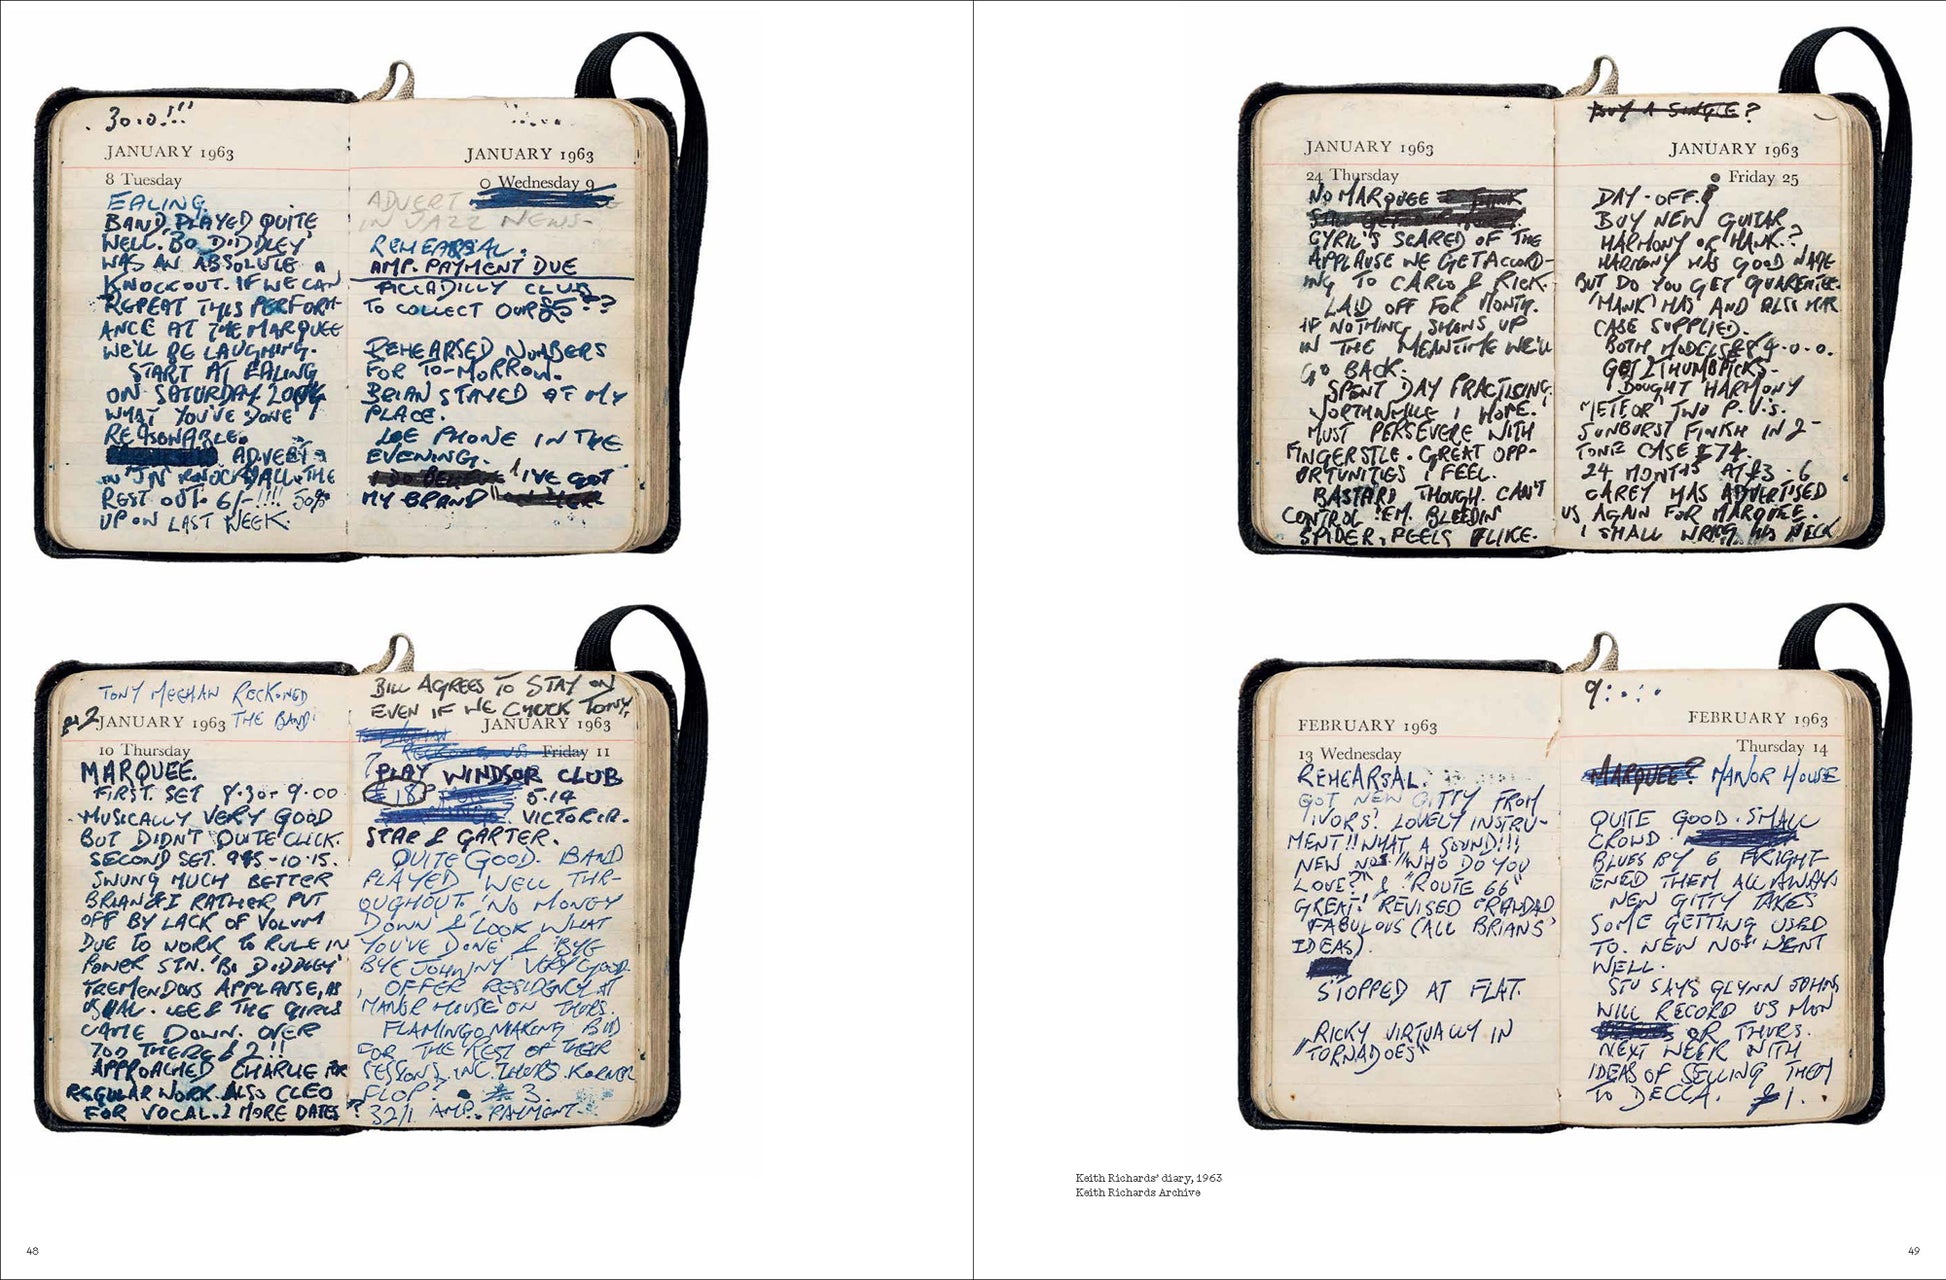 30.0!!
JANUARY 1963
8 Tuesday
EALING.
BAND PLAYED QUITE
WELL. 'BO DIDDLEY'
WAS AN ABSOLUTE
KNOCKOUT. IF WE CAN
REPEAT THIS PERFORM-
ANCE AT THE MARQUEE
WE'LL BE LAUGHING.
START AT EALING
ON SATURDAY
WHAT YOU'VE DONE
REASONABLE.
ADVERT
IN 'JN' KNOCKS ALL THE
REST OUT. 6/-!!!! 50%
UP ON LAST WEEK.
JANUARY 1963
Wednesday 9
ADVERT
IN JAZZ NEWS-
REHEARSAL.
AMP. PAYMENT DUE
PICCADILLY CLUB
TO COLLECT OUR ??
REHEARSED NUMBERS
FOR TO-MORROW.
BRIAN STAYED AT MY
PLACE.
LEE PHONE IN THE
EVENING.
I DO BELIEVE I'VE GOT
MY BRAND
TONY MEEHAN RECKONED
THE BAND.
JANUARY 1963
10 Thursday
MARQUEE.
FIRST SET 8.30-9.00
MUSICALLY VERY GOOD
BUT DIDN'T QUITE CLICK.
SECOND SET. 9.45-10.15.
SWUNG MUCH BETTER
BRIAN & I RATHER PUT
OFF BY LACK OF VOLUM
DUE TO WORK TO RULE IN
POWER STN. 'BO DIDDLEY'
TREMENDOUS APPLAUSE, AS
USUAL. LEE & THE GIRLS
CAME DOWN. OVER
700 THERE £2!!
APPROACHED CHARLIE FOR
REGULAR WORK. ALSO CLEO
FOR VOCAL. 2 MORE DATES?
BILL AGREES TO STAY ON
EVEN IF WE CHUCK TONY.
JANUARY 1963
RECKONS US Friday 11
PLAY WINDSOR CLUB
£18? 5.14
VICTORIA.
STAR & GARTER.
QUITE GOOD. BAND
PLAYED WELL THR-
OUGHOUT. 'NO MONEY
DOWN' & 'LOOK WHAT
YOU'VE DONE' & 'BYE
BYE JOHNNY' VERY GOOD.
OFFER RESIDENCY AT
MANOR HOUSE ON THURS.
FLAMINGO MAKING BID
FOR THE REST OF THEIR
SESSIONS INC. THURS. KORNER
FLOP? £3.
32/1 AMP. PAYMENT.
JANUARY 1963
24 Thursday
NO MARQUEE
CYRIL'S SCARED OF THE
APPLAUSE WE GET ACCORD-
ING TO CARLO & RICK.
LAID OFF FOR MONTH.
IF NOTHING SHOWS UP
IN THE MEANTIME WE'LL
GO BACK.
SPENT DAY PRACTISING.
WORTHWHILE I HOPE.
MUST PERSEVERE WITH
FINGERSTLE. GREAT OPP-
ORTUNITIES I FEEL.
BASTARD THOUGH. CAN'T
CONTROL 'EM. BLEEDIN
SPIDER, FEELS LIKE.
BUY A SINGLE?
JANUARY 1963
Friday 25
DAY-OFF!
BUY NEW GUITAR
HARMONY OR HAWK.?
HARMONY HAS GOOD NAME
BUT DO YOU GET GUARENTEE.
'HAWK' HAS AND ALSO HAS
CASE SUPPLIED.
BOTH MODELS £84-0-0.
GOT 2 THUMBPICKS-
BOUGHT HARMONY
'METEOR' TWO P.U.'S.
SUNBURST FINISH IN 2-
TONE CASE £74.
24 MONTHS AT £3-6
CAREY HAS ADVERTISED
US AGAIN FOR MARQUEE.
I SHALL WRING HIS NECK
FEBRUARY 1963
13 Wednesday
REHEARSAL.
GOT NEW GITTY FROM
IVORS! LOVELY INSTRU-
MENT!! WHAT A SOUND!!!
NEW NOS. "WHO DO YOU
LOVE?" & "ROUTE 66"
GREAT! REVISED CRAWDAD
FABULOUS (ALL BRIANS
IDEAS).
STOPPED AT FLAT.
RICKY VIRTUALLY IN
"TORNADOES"
FEBRUARY 1963
Thursday 14
MARQUEE? MANOR HOUSE
QUITE GOOD. SMALL
CROWD
BLUES BY 6 FRIGHT-
ENED THEM ALL AWAY.
NEW GITTY TAKES
SOME GETTING USED
TO. NEW NOS. WENT
WELL.
STU SAYS GLYNN JOHNS
WILL RECORD US MON
OR THURS.
NEXT WEEK WITH
IDEAS OF SELLING THEM
TO DECCA. £1.
Keith Richards' diary, 1963
Keith Richards Archive
48
49